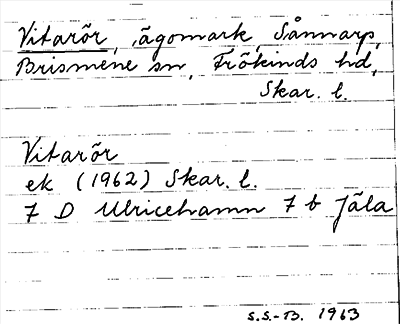 Vitarör, ägomark, Sånnarp,
Brismene sn, Frökinds hd,
Skar. l.
Vitarör
ek (1962) Skar. l.
7 D Ulricehamn 7 b Jäla
S.S.-B. 1963